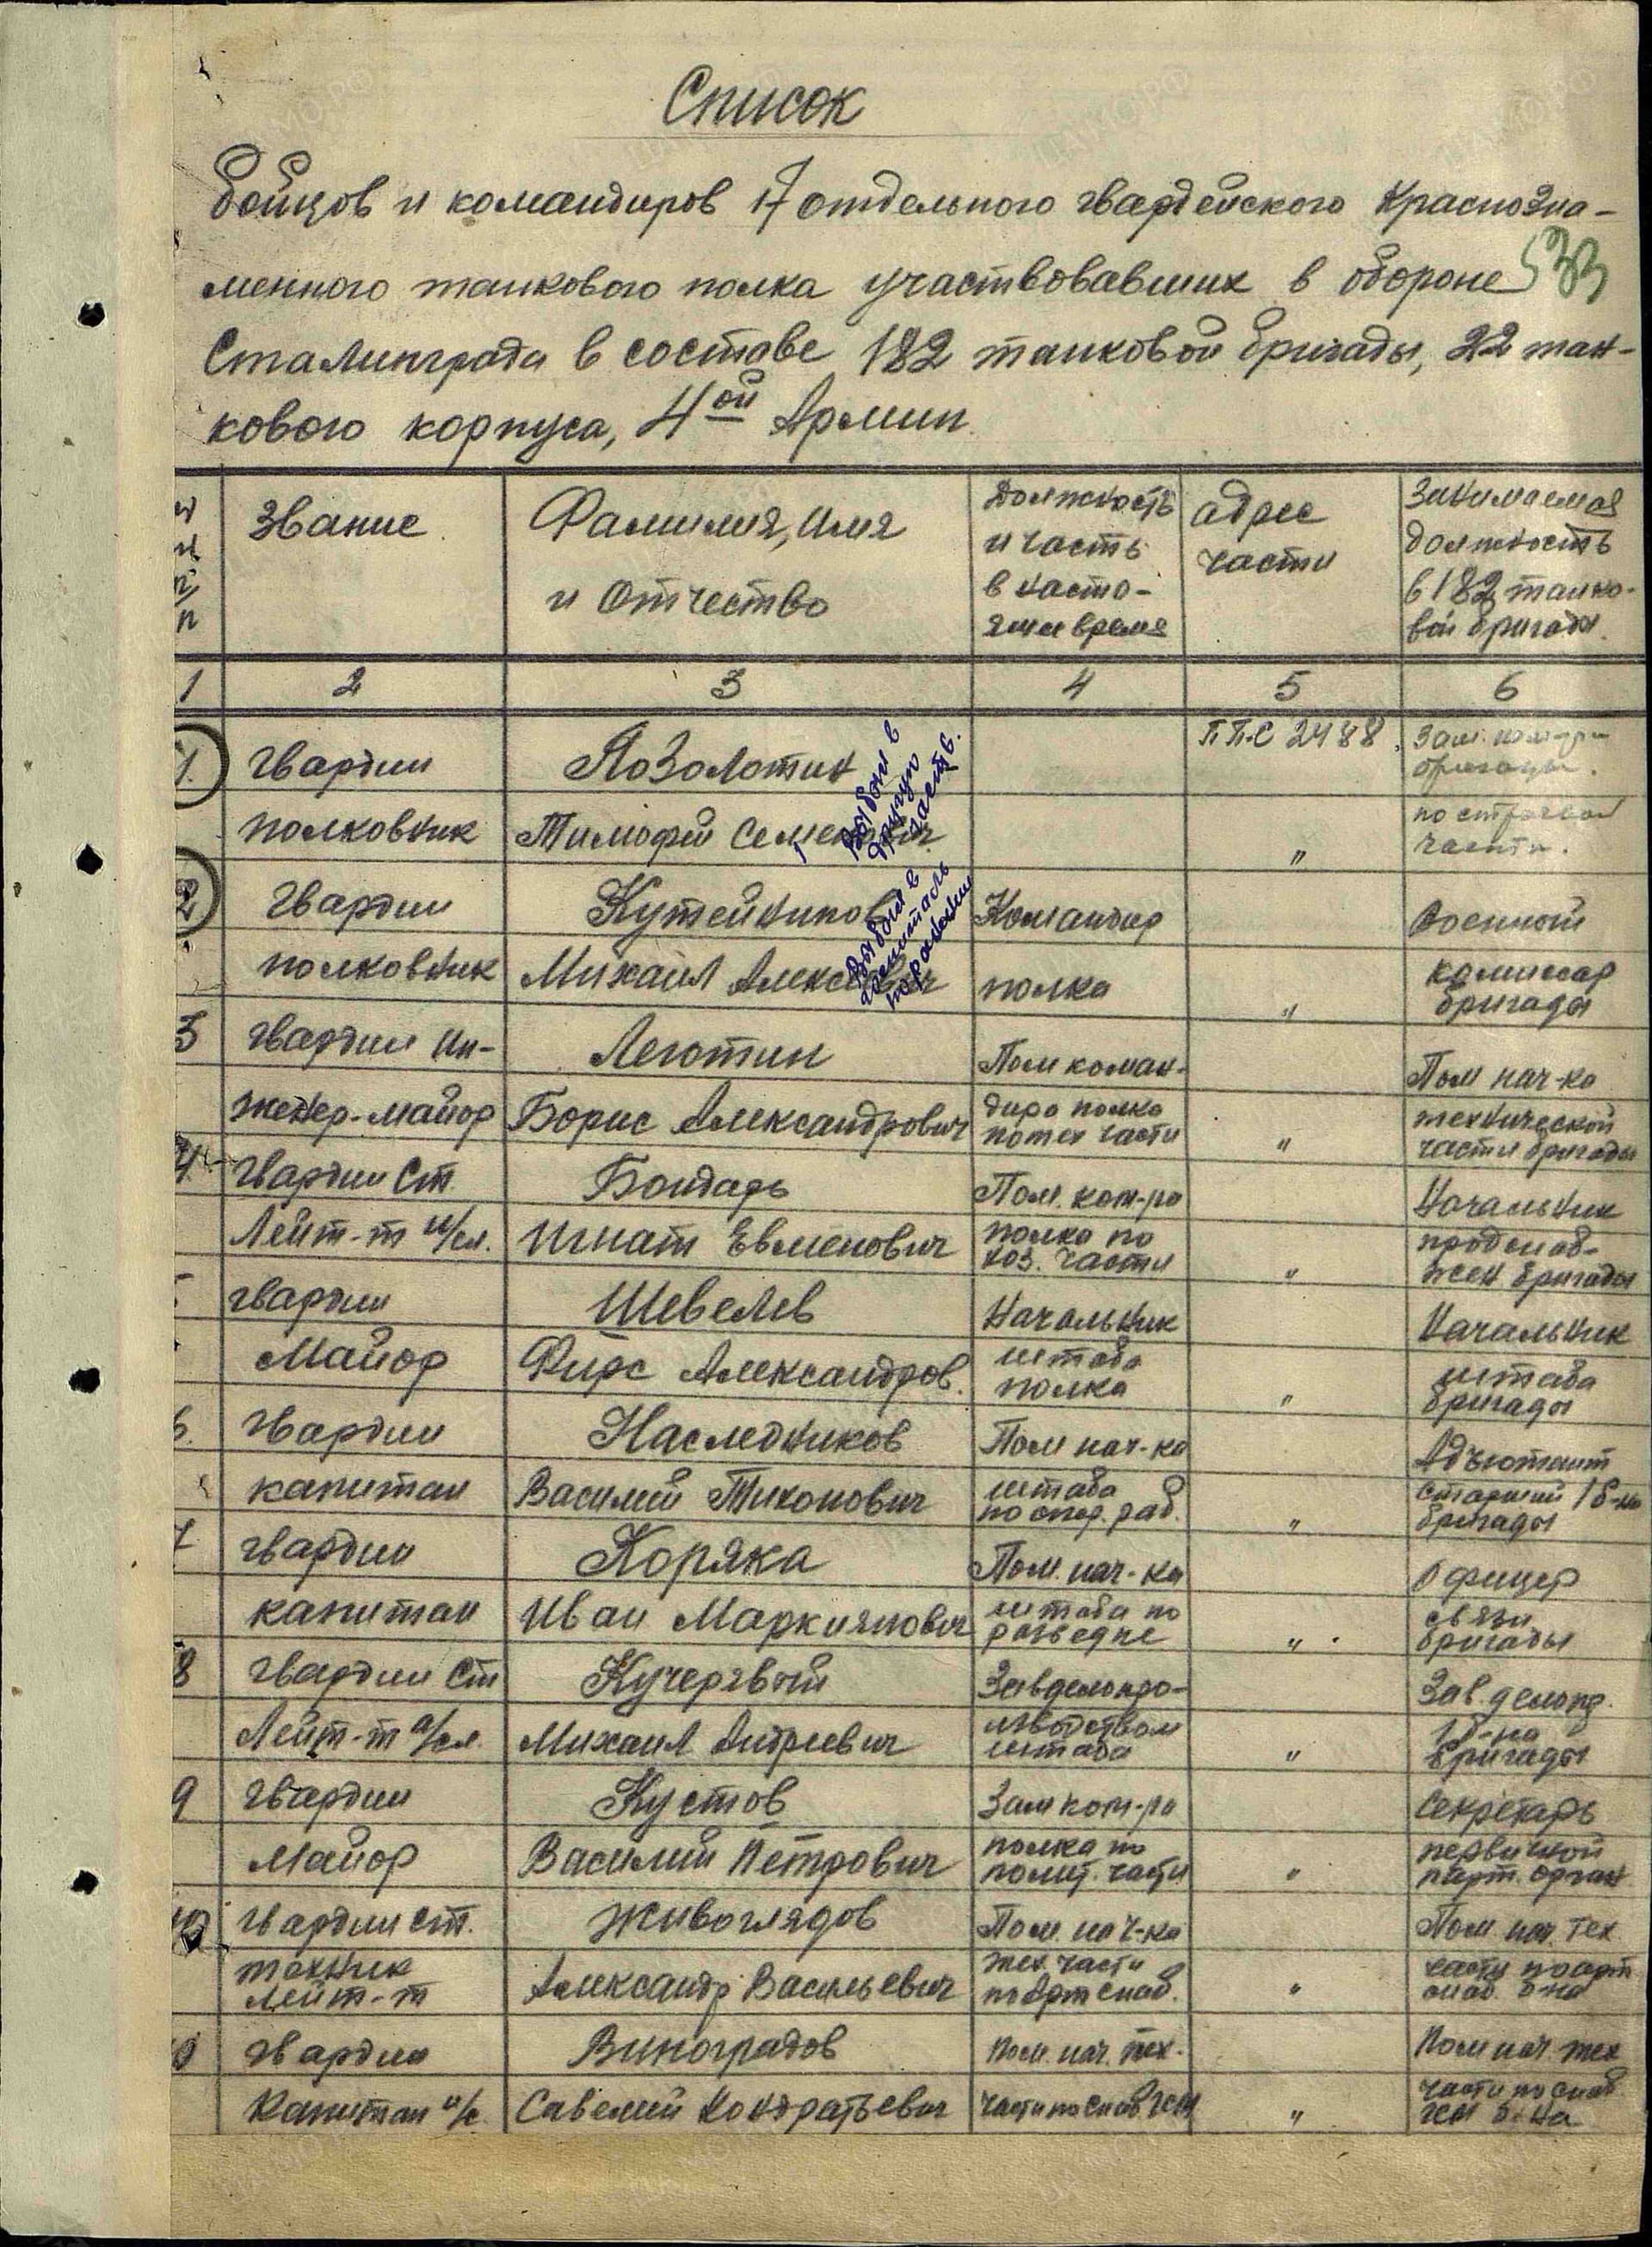 Список
бойцов и командиров 17 отдельного гвардейского Краснозна-
менного танкового полка участвовавших в обороне
533
Сталинграда в составе 182 танковой бригады, 22 тан-
кового корпуса, 4ой Армии
п/п
Звание
Фамилия, имя
и Отчество
Должность
и часть
в насто-
ящее время
адрес
части
Занимаемая
должность
в 182 танко-
вой бригаде.
1 2 3 4 5 6
1. Гвардии Позолотин ППС 2488 Зам. ком-ра
бригады
полковник Тимофей Семенович " по строевой
части.
Выбыл в
другую
часть.
2 Гвардии Кутейников Командир Военный
полковник Михаил Алексеевич полка " комиссар
бригады
Выбыл в
госпиталь
по ранению
3 гвардии Ин- Леготин Пом коман- Пом нач-ка
женер-майор Борис Александрович дира полка технической
по тех части " части бригады
4 Гвардии Ст. Бондарь Пом. ком-ра Начальник
Лейт-т и/сл. Игнат Евменович полка по продснаб-
хоз. части " жен бригады
гвардии Шевелев Начальник Начальник
Майор Фирс Александров. штаба штаба
полка " бригады
6. Гвардии Наследников Пом нач-ка Адъютант
капитан Василий Тихонович штаба старший 1 б-на
по опер. раб. " бригады
7 гвардии Коряка Пом. нач-ка Офицер
капитан Иван Маркиянович штаба по связи
разведке " бригады
8 гвардии Ст Кучерявый Завделопро- Зав. делопр.
Лейт-т а/сл. Михаил Андреевич изводством 1 б-на
штаба " бригады
9 гвардии Кустов Зам ком-ра Секретарь
Майор Василий Петрович полка по первичной
полит. части " парт. орган
10 гвардии ст. Живоглядов Пом. нач-ка Пом. нач. тех
техник Александр Васильевич тех. части части по арт
лейт-т по Арт снаб. " снаб. б-на
гвардии Виноградов Пом. нач. тех. Пом нач. тех
Капитан и/с Савелий Кондратьевич части по снаб ГСМ " части по снаб
ГСМ б-на